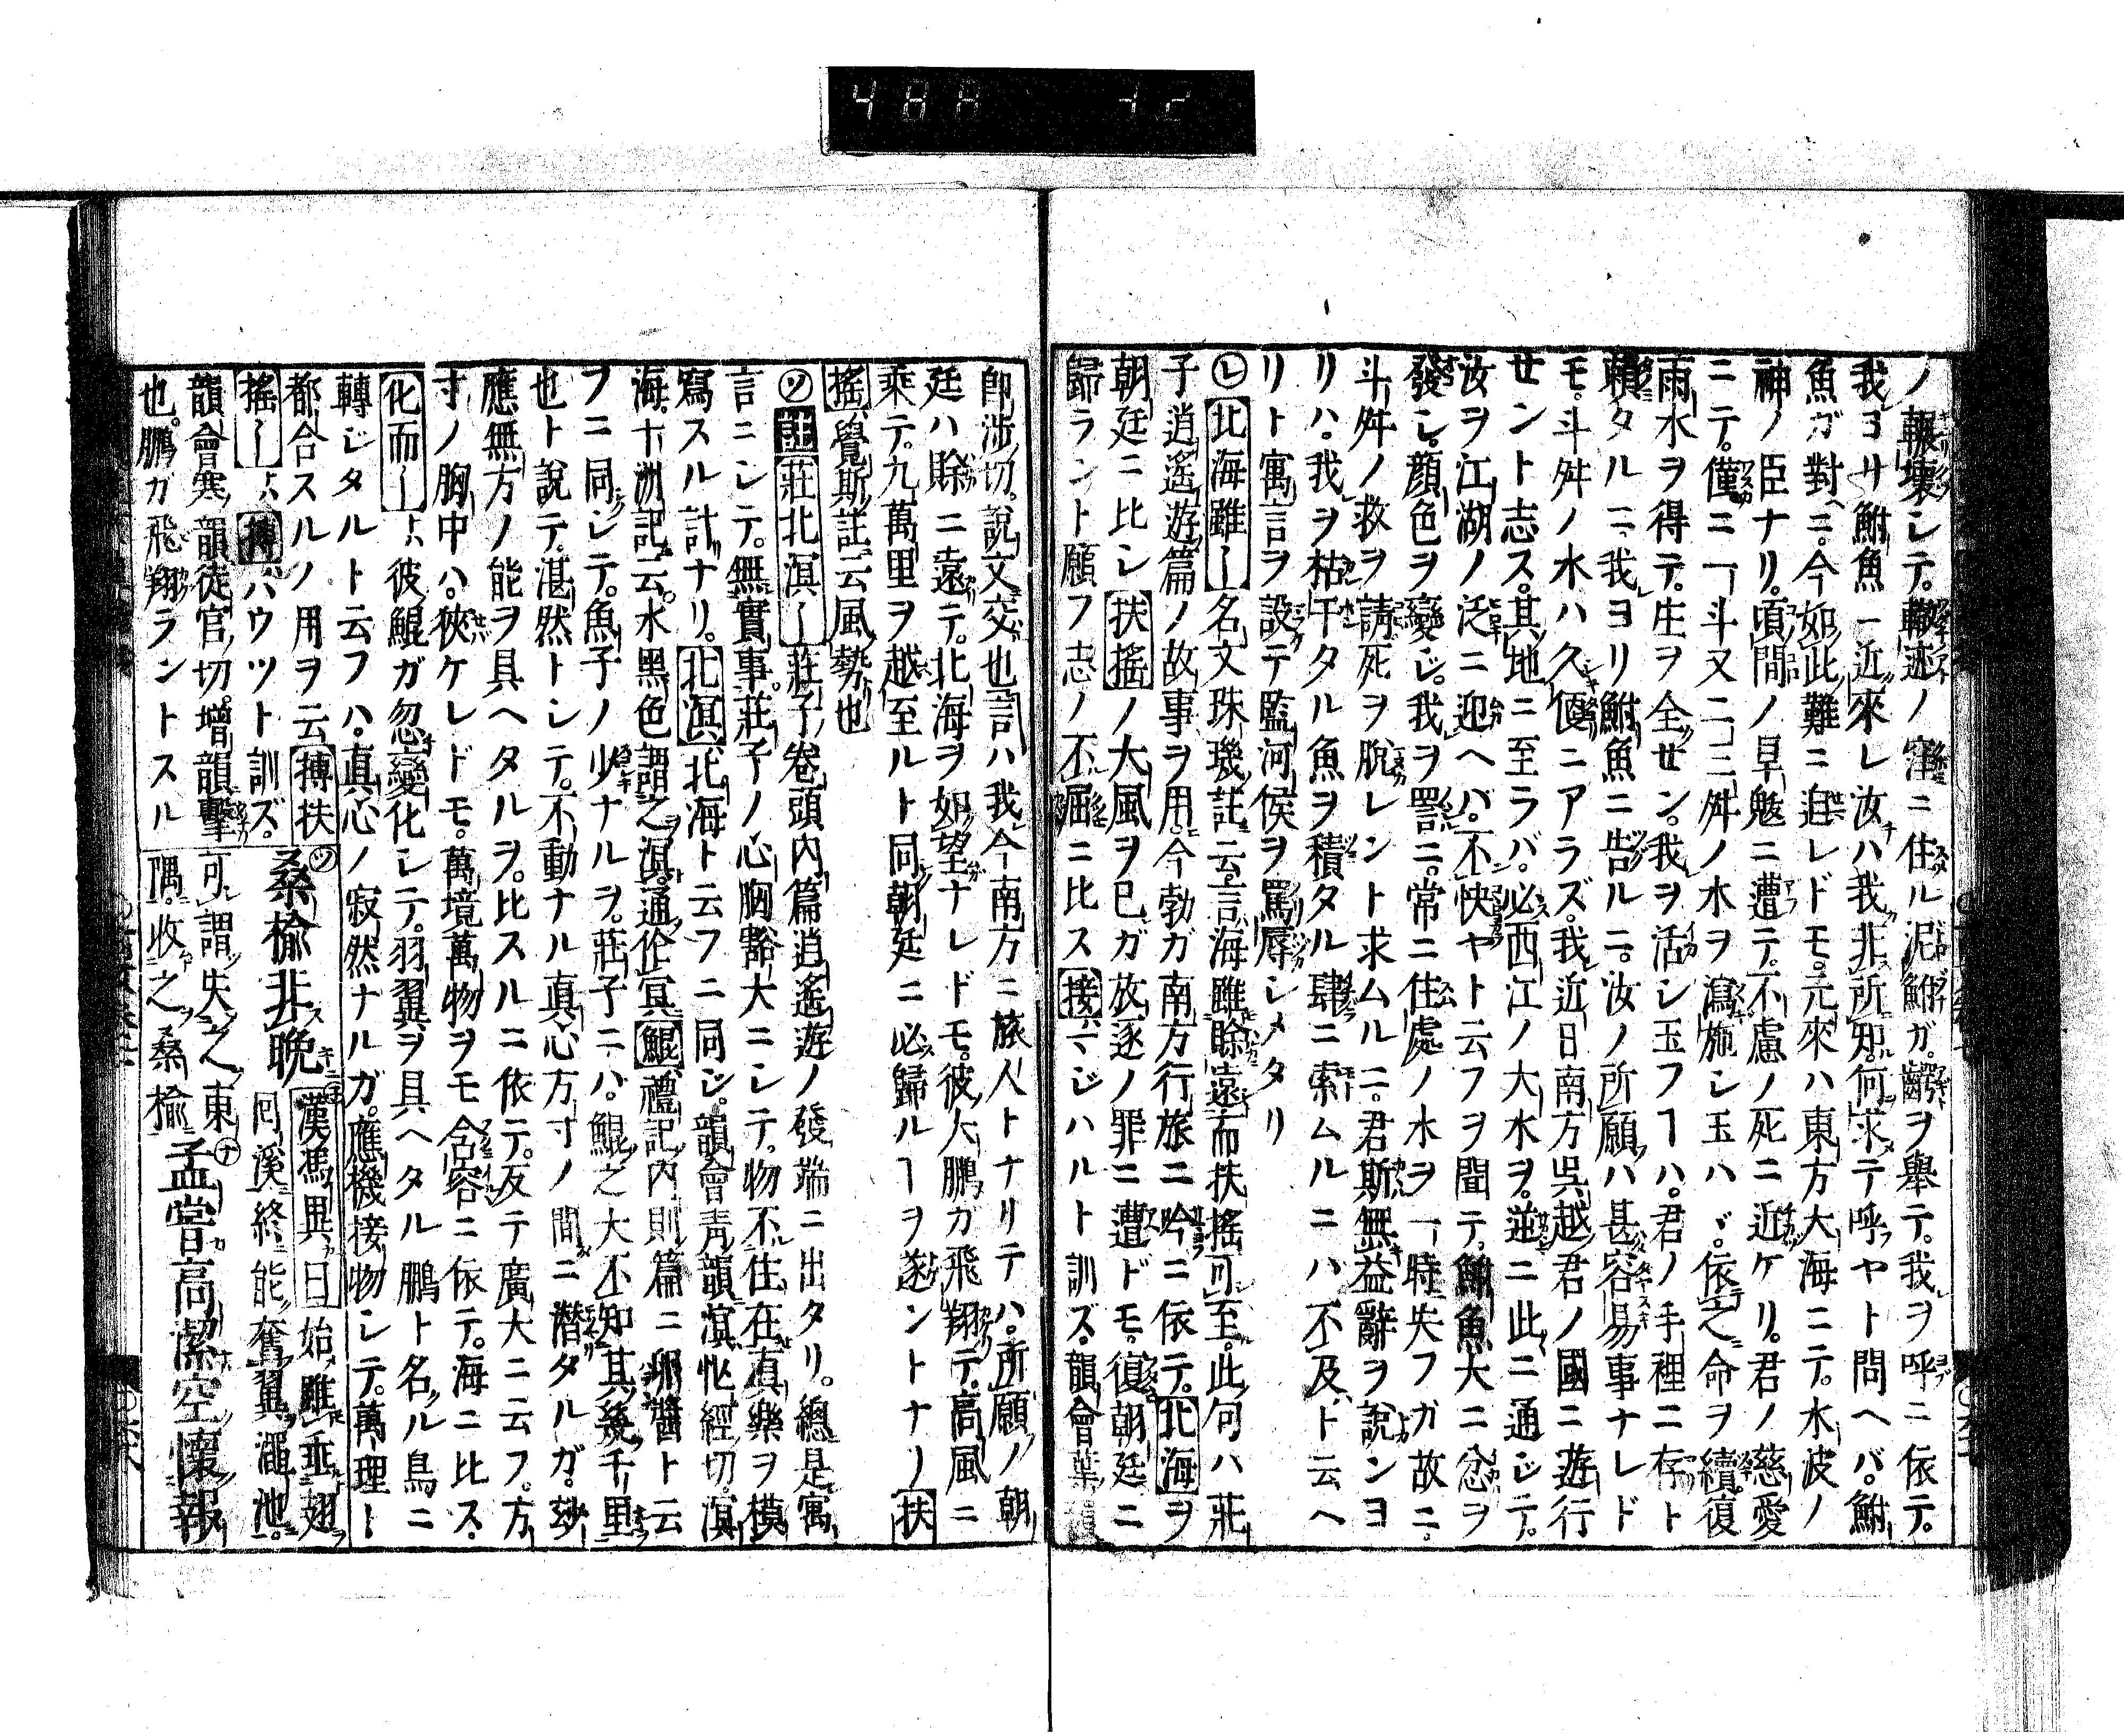 ノ輾壞シテ。轍迹ノ窪ニ住ル泥鮒ガ。齶ヲ舉テ。我ヲ呼ニ依テ。
我ヨリ鮒魚ニ近來レ汝ハ我非所知。何求テ呼ヤト問ヘバ。鮒
魚ガ對ニ。今如此難ニ迫レドモ。元來ハ東方大海ニテ。水波ノ
神ノ臣ナリ。頃間ノ旱魃ニ遭テ。不慮ノ死ニ近ケリ。君ノ慈愛
ニテ。僅ニ一斗又二三舛ノ水ヲ瀉施シ玉ハヾ。依之命ヲ續。復
雨水ヲ得テ。生ヲ全セン。我ヲ活シ玉フヿハ。君ノ手裡ニ存ト
賴タルニ。我ヨリ鮒魚ニ告ルニ。汝ノ所願ハ甚容易事ナレド
モ。斗舛ノ水ハ久優ニアラズ。我近日南方呉越君ノ國ニ遊行
セント志ス。其地ニ至ラバ。必西江ノ大水ヲ。逆ニ此ニ通ジテ。
汝ヲ江湖ノ泛ニ迎ヘバ。不快ヤト云フヲ聞テ。鮒魚大ニ忿ヲ
發シ。顔色ヲ變ジ。我ヲ詈ニ。常ニ住處ノ水ヲ一時失フガ故ニ。
斗舛ノ救ヲ請死ヲ脫レント求ムルニ。君斯無益辭ヲ說ンヨ
リハ。我ヲ枯干タル魚ヲ積タル肆ニ索ムルニハ不及、ト云ヘ
リト寓言ヲ設テ監河侯ヲ罵辱シメタリ
㋹北海雖〡名文珠璣註云。言海雖賒遠而扶搖可至。此句ハ莊
子逍遙遊篇ノ故事ヲ用。今勃ガ南方行旅ニ吟ニ依テ。北海ヲ
朝廷ニ比シ扶搖ノ大風ヲ已ガ放逐ノ罪ニ遭ドモ。復朝廷ニ
歸ラント願フ志ノ不屈ニ比ス接ハマジハルト訓ズ。韻會葉韻
即渉切。說文交也言ハ我今南方ニ旅人トナリテハ。所願ノ朝
廷ハ賒ニ遠テ。北海ヲ如望ナレドモ。彼大鵬カ飛翔テ。高風ニ
乘テ。九萬里ヲ越至ルト同朝廷ニ必歸ルヿヲ遂ントナノ扶
搖覺斯註云風勢也
㋞註莊北溟〡莊子卷頭内篇逍遙遊ノ發端ニ出タリ。總是寓
言ニシテ。無實事。莊子ノ心胸豁大ニシテ。物不住在眞樂ヲ模
寫スル計ナリ。北溟北海ト云フニ同ジ。韻會靑韻溟忙經切。溟
海。十洲記云。水黑色謂之溟。通作冥鯤禮記内則篇ニ卵醬ト云
フニ同シテ。魚子ノ少ナルヲ。莊子ニハ。鯤之大不知其幾千里
也ト說テ。湛然トシテ。不動ナル眞心方寸ノ間ニ潜タルガ。玅
應無方ノ能ヲ具ヘタルヲ。比スルニ依テ。反テ廣大ニ云フ。方
寸ノ胸中ハ。狹ケレドモ。萬境萬物ヲモ含容ニ依テ。海ニ比ス・
化而〡ハ彼鯤ガ忽變化シテ。羽翼ヲ具ヘタル鵬ト名ル鳥ニ
轉ジタルト云フハ。眞心ノ寂然ナルガ。應機接物シテ。萬理ト
都合スルノ用ヲ云摶扶
搖〡ハ摶ハウツト訓ズ。
韻會寒韻徒官切。增韻擊
也。鵬ガ飛翔ラントスル
㋡桑榆非晩漢馮異曰始雖垂翅
囘溪終能奮翼澠池。
可謂失之東
隅。收之桑榆㋤孟嘗高潔空懷報